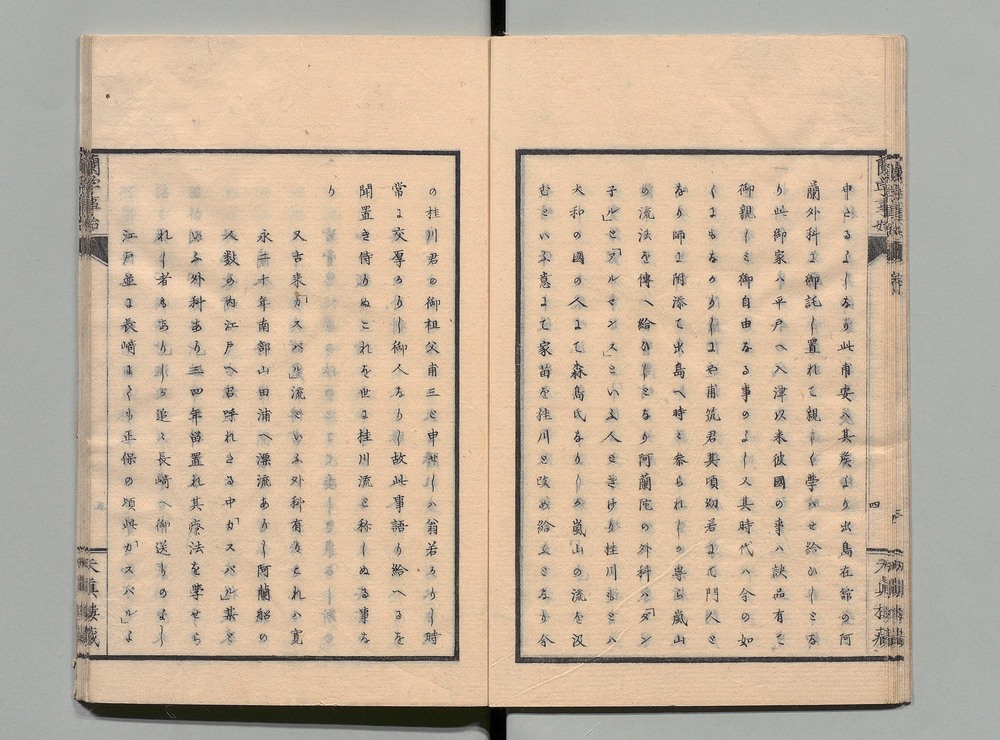 申せるよしなり此甫安ハ其侯より出島在館の阿
蘭外科に御託し置れて親しく學ハせ給ひしとな
り此御家ハ平戸へ入津以来彼國の事ハ訣品有て
御親しミ御自由なる事のよし又其時代ハ今の如
くにもなかりしにや甫筑君其頃幼君にて門人と
なり師に附添て出島へ時〻参られしの専ら嵐山
の流法を傳へ給ひしとなり阿蘭陀の外科ハ「ダン
子ル」と「アルマンス」といふ人ときけり桂川もとハ
大和の國の人にて森島氏なりしか嵐山の流を汲
むといふ意にて家苗を桂川と改め給ふとなり今
の桂川君の御祖父甫三と申せしハ翁若かりし時
常に交厚かりし御人なりし故此事語り給へるを
聞置き侍りぬこれを世に桂川流と称しぬる事な
り
又古来「カスパル」流といふ外科有之これハ寛
永二十年南部山田浦へ漂流ありし阿蘭船の
人数の内江戸へ召呼れさる中「カスパル」某と
いふ外科あり三四年留置れ其療法を學せら
れし者もありしか追〻長崎へ御送りのよし
江戸並に長崎にても正保の頃此「カスパル」よ
蘭学事始
四
天真楼蔵